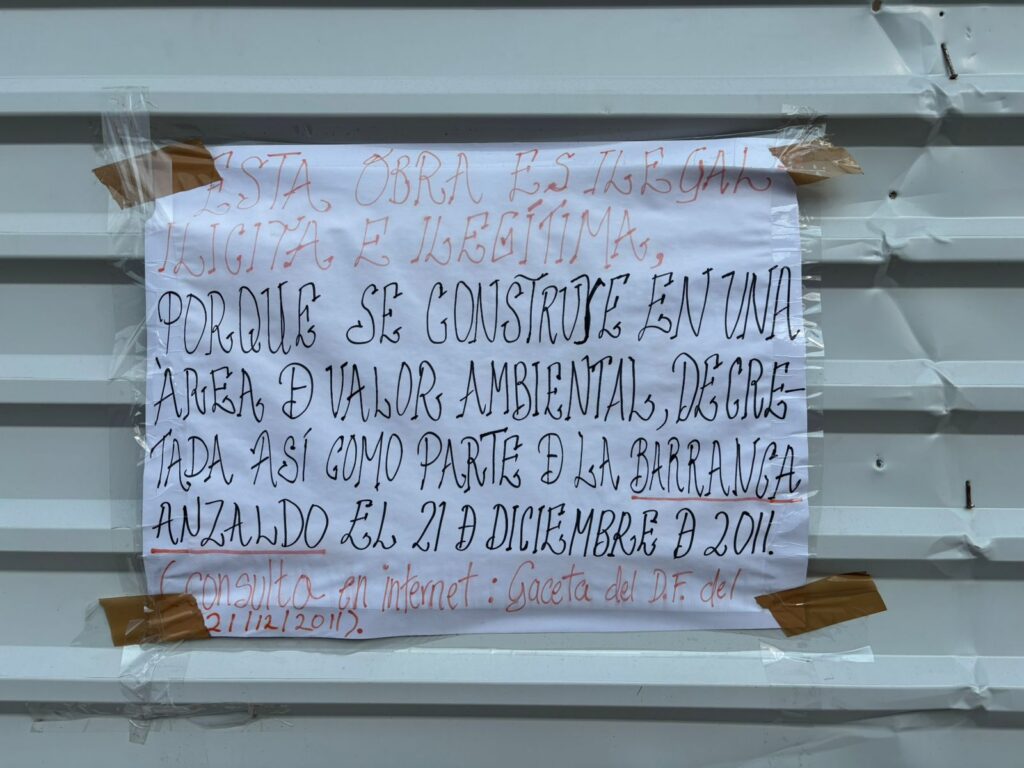 ESTA OBRA ES ILEGAL
ILICITA E ILEGÍTIMA,
PORQUE SE CONSTRUYE EN UNA
ÀREA D VALOR AMBIENTAL, DECRE-
TADA ASÍ COMO PARTE D LA BARRANCA
ANZALDO EL 21 D DICIEMBRE D 2011.
(consulta en internet: Gaceta del D.F. del
21/12/2011).